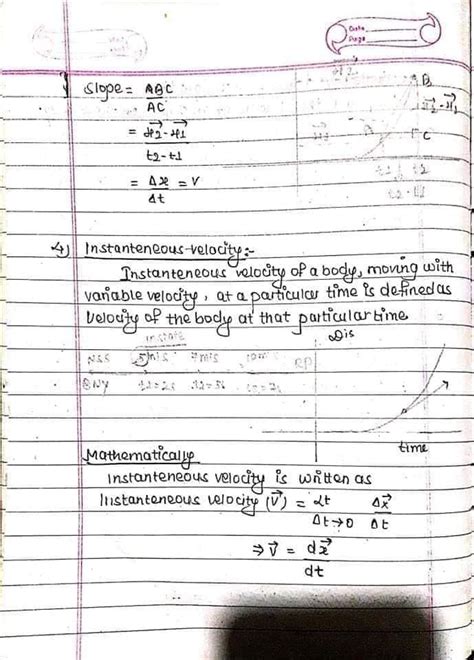 Date
Page
Slope = ABC
AC
B
= x⃗2-x⃗1
t2-t1
C
= Δx = v
Δt
4) Instanteneous-velocity:-
Instanteneous velocity of a body, moving with
variable velocity, at a particular time is defined as
velocity of the body at that particular time
Dis
time
Mathematically
Instanteneous velocity is written as
Instanteneous velocity (v⃗) = Lt Δx⃗
Δt→0 Δt
⇒ v⃗ = dx⃗
dt